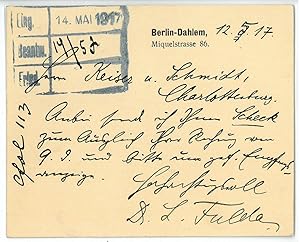 Eing. 14. MAI 1917
Beantw.
Erled.
Berlin-Dahlem, 12. 5. 17
Miquelstrasse 86.
Herrn Keiser u. Schmidt,
Charlottenburg.
Anbei send ich Ihnen Scheck
zum Ausgleich Ihrer Rechng vom
9. d. und bitte um gefl. Empfangs-
anzeige.
Hochachtungsvoll
D. L. Fulda